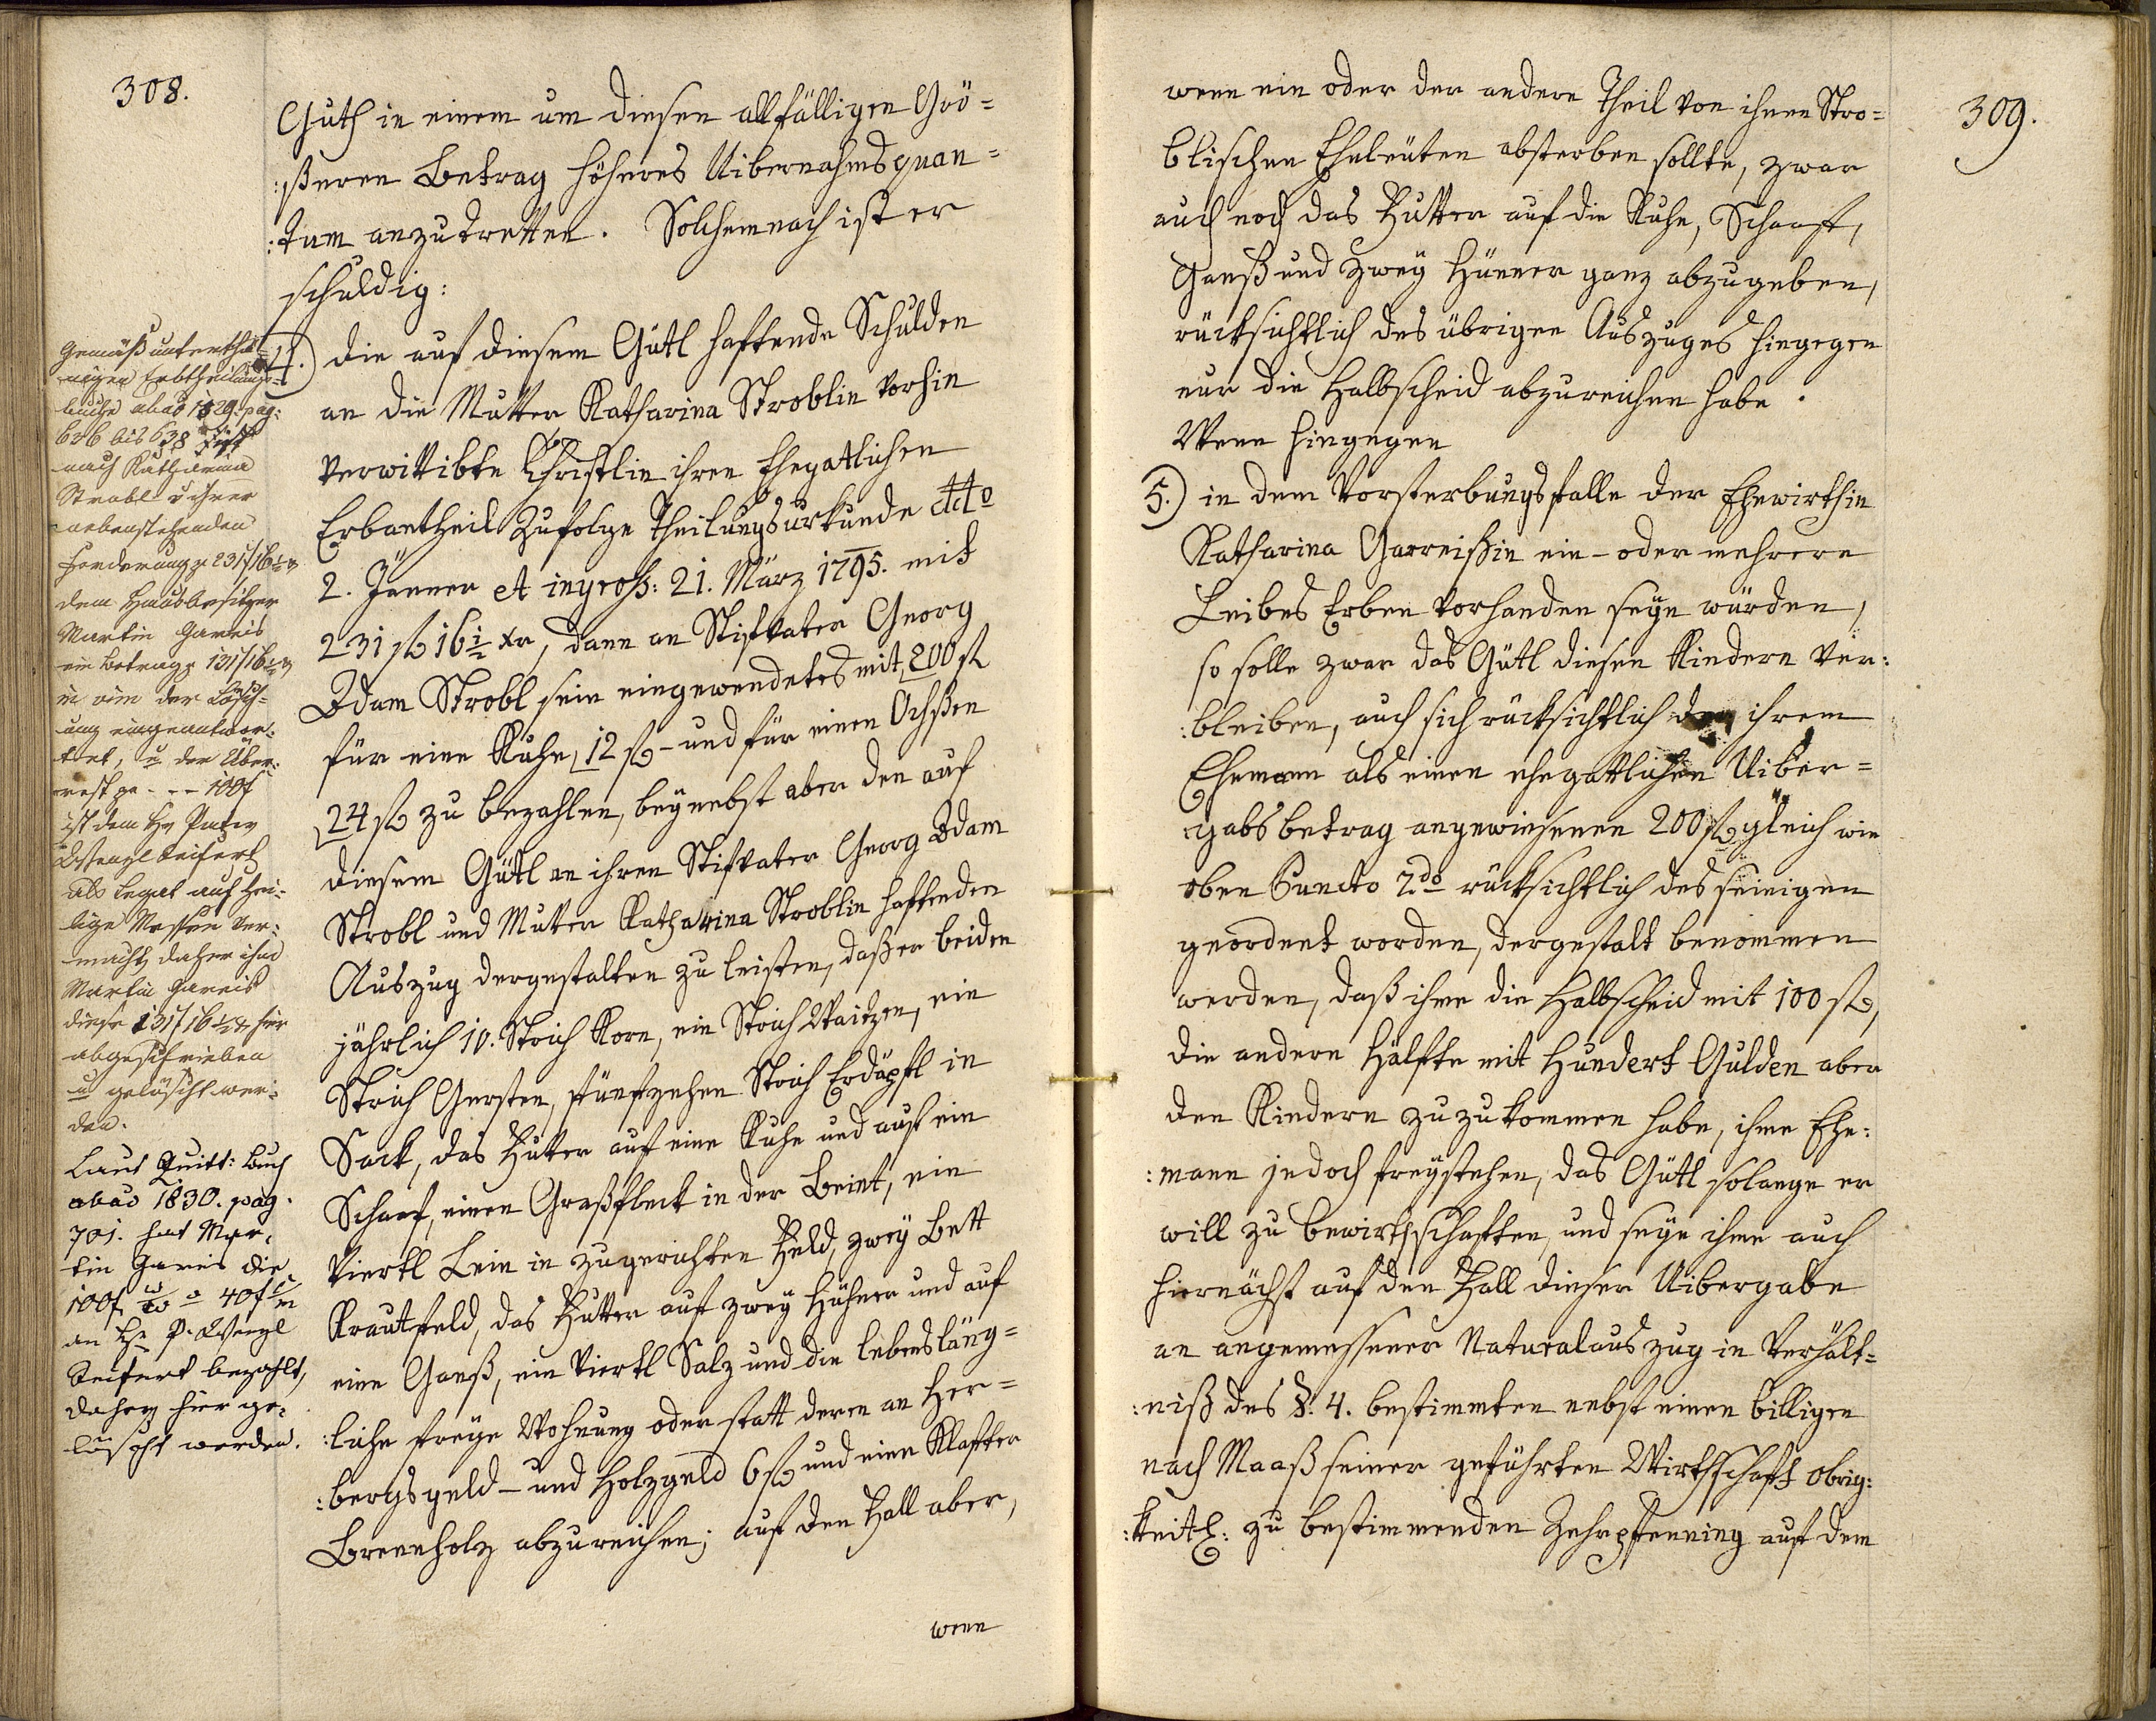 308.
Guth in einem um diesen allfälligen Grö=
:ßeren Betrag höheres Uibernahmsquan=
:tum anzutretten. Solchemnach ist er
schuldig:
4.) die auf diesem Gütl haftende Schulden
an die Mutter Katharina Stroblin vorhin
verwittibte Christlin ihren Ehegatlichen
Erbantheil zufolge Theilungsurkunde ddto
2. Jänner et ingross: 21. März 1795. mit
231 fl 16 1/2 xr, dann an Stifvater Georg
Adam Strobl sein eingewendetes mit 200 fl
für eine Kuhe 12 fl - und für einen Ochßen
24 fl zu bezahlen, beynebst aber den auf
diesem Gütl an ihren Stifvater Georg Adam
Strobl und Mutter Katharina Stroblin haftenden
Auszug dergestalten zu leisten, daß er beiden
jährlich 10. Strich Korn, ein Strich Waitzen, ein
Strich Gersten, fünfzehen Strich Erdäpfl in
Sack, das Futter auf eine Kuhe und auf ein
Schaaf, einen Graßfleck in der Beint, ein
Viertl Lein in zugerichten Feld, zwey Bett
Krautfeld, das Futter auf zwey Hühner und auf
eine Ganß, ein Viertl Salz und die lebensläng=
:liche freye Wohnung oder statt deren an Her=
:bergsgeld - und Holzgeld 6 fl und eine Klafter
Brennholz abzureichen; auf den Fall aber,
wenn
Gemäß unterthä=
nigen Erbtheilungs=
buche abao 1829. pag:
636 bis 638 ist
nach Katharina
Strobl u ihrer
nebenstehenden
Forderung p 231f 16 1/2 xr
dem Hausbesitzer
Martin Gareis
ein Betrag p 131f 16 1/2 xr
in vim der Lösch=
ung eingeantwor=
tet, u der Über=
rest pr - - - 100f
ist dem Hr Pater
Wenzl Seifert
als Legat auf hei=
lige Messen ver=
macht, daher ihm
Martin Gareis
diese 131f 16 1/2 xr hier
abgeschrieben
u gelöscht wer=
den.
Laut Quitt: Buch
abao 1830. pag.
701. hat Mar=
tin Gareis die
100f 40f
an Hr P. Wenzl
Seifert bezahlt,
daher hier ge=
löscht worden.
309.
wenn ein oder der andere Theil von ihnen Stro=
blischen Eheleuten absterben sollte, zwar
auch noch das Futter auf die Kuhe, Schaaf,
Ganß und zwey Hünner ganz abzugeben,
rücksichtlich des übrigen Auszuges hingegen
nur die Halbscheid abzureichen habe.
Wenn hingegen
5.) in dem Vorsterbungsfalle der Ehewirthin
Katharina Garreißin ein - oder mehrere
Leibes Erben vorhanden seyn würden,
so solle zwar das Gütl diesen Kindern ver:
:bleiben, auch sich rücksichtlich der ihrem
Ehemann als einen ehegattlichen Uiber=
gabsbetrag angewiesenen 200 fl gleich wie
oben Puncto 2do rücksichtlich des seinigen
geordent worden, dergestalt benommen
werden, daß ihme die Halbscheid mit 100 fl,
die andere Hälfte mit Hundert Gulden aber
den Kindern zuzukommen habe, ihme Ehe:
:mann jedoch freystehen, das Gütl solange er
will zu bewirthschaften, und seye ihme auch
hiernächst auf den Fall dieser Uibergabe
an angemessener Naturalauszug in Verhält=
:niß des §. 4. bestimmten nebst einen billigen
nach Maaß seiner geführten Wirthschaft obrig:
:keitl: zu bestimmenden Zehrpfenning auf dem